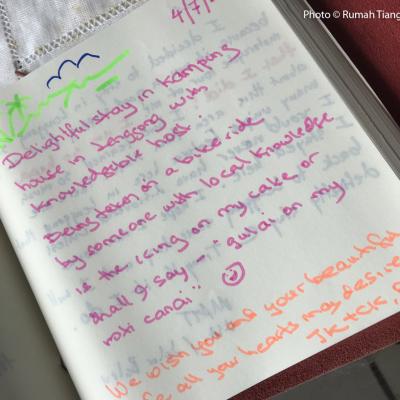 Photo © Rumah Tiang
4/7/
Delightful stay in Kampong
house in Lenggong with
knowledgeable host.
Being taken on a bike ride
by someone with local knowledge
is the icing on my cake or
shall I say - : gulai on my
roti canai!
We wish you and your beautiful
all your hearts may desire
JK + CK